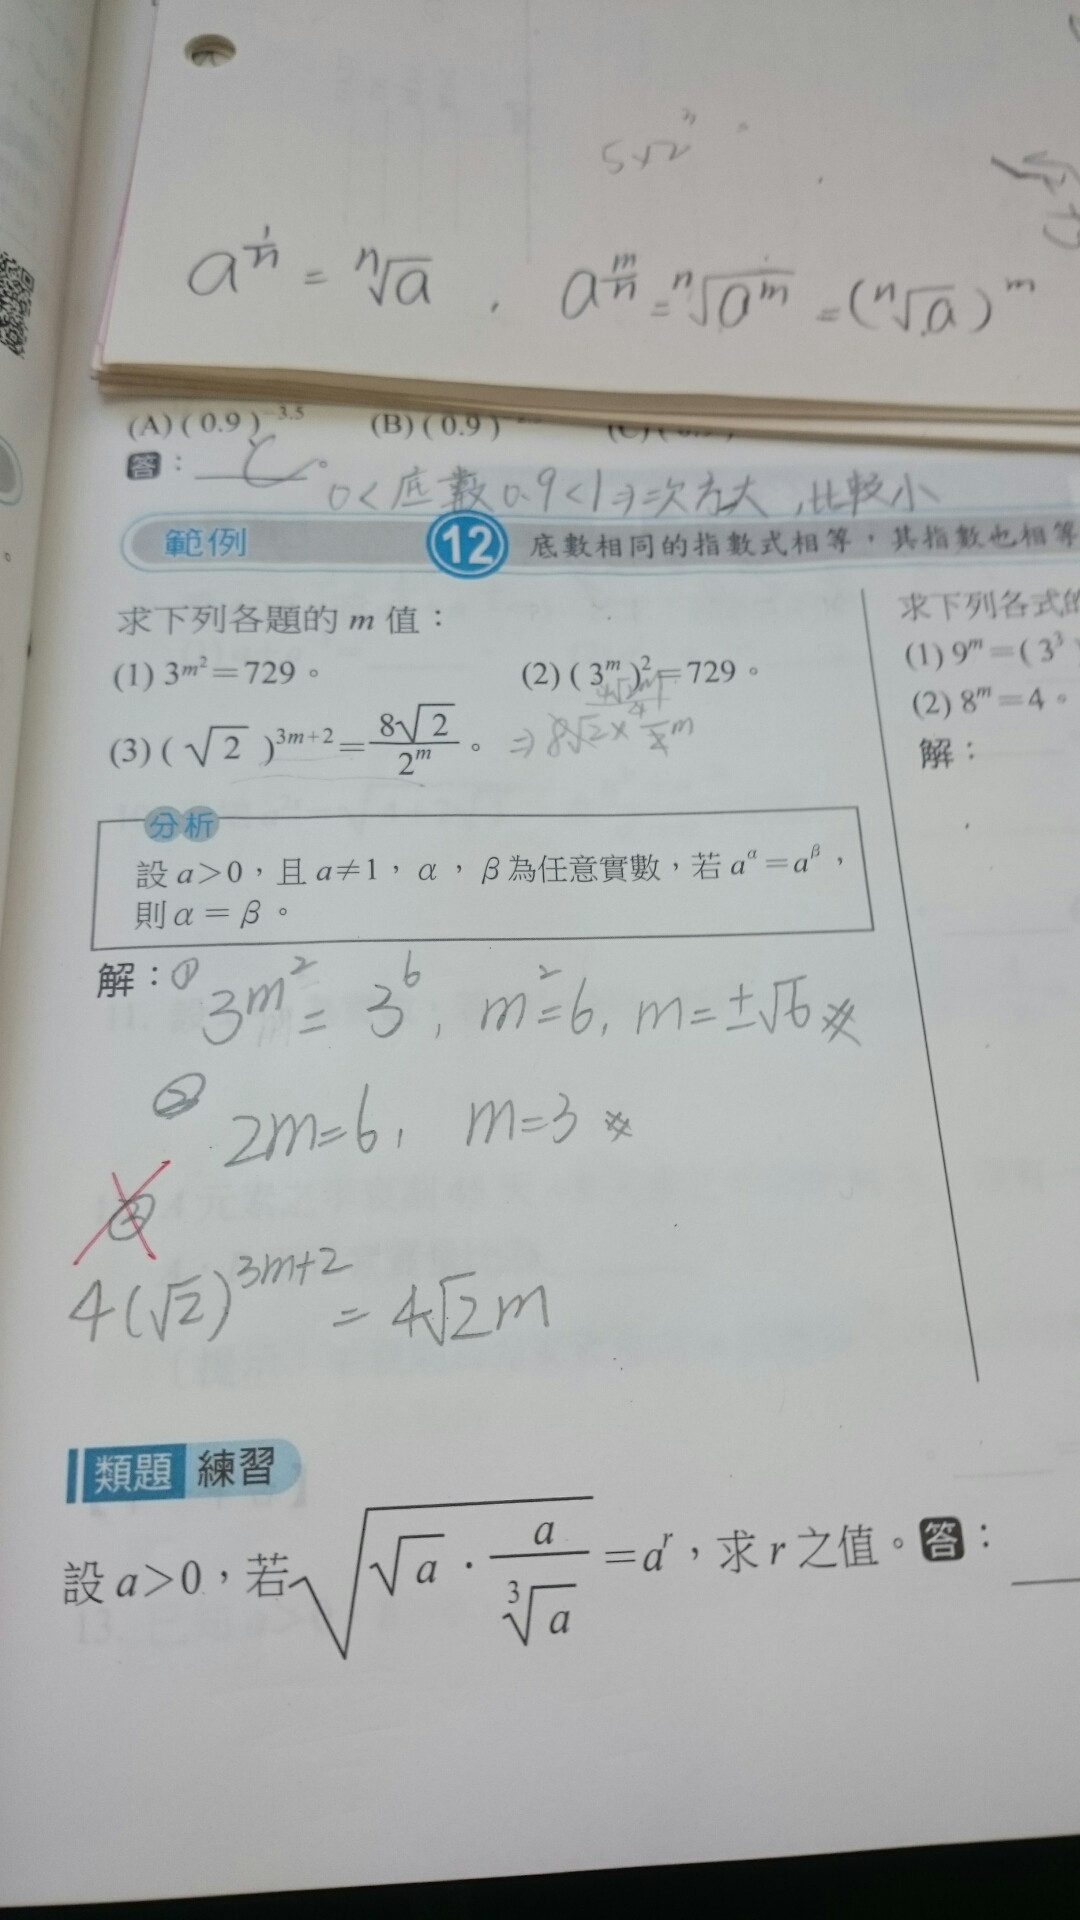 5√2
a^{\frac{1}{n}} = ⁿ√a , a^{\frac{m}{n}} = ⁿ√(a^m) = (ⁿ√a)^m
(A) ( 0.9 )^{-3.5} (B) ( 0.9 )
答：C。
0<底數0.9<1⇒次方大，比較小
範例 12 底數相同的指數式相等，其指數也相等
求下列各題的 m 值：
(1) 3^{m²}＝729。 (2) ( 3^m )²＝729。
(3) ( √2 )^{3m+2}＝\frac{8√2}{2^m}。 ⇒ 8√2 ×
分析
設 a>0，且 a≠1，α，β為任意實數，若 a^α＝a^β，
則 α＝β。
解：① 3^{m²} = 3^6, m²=6, m=±√6
② 2m=6, m=3
③
4(√2)^{3m+2} = 4√2m
求下列各式的
(1) 9^m＝( 3³
(2) 8^m＝4。
解：
類題 練習
設 a>0，若 √(√a · \frac{a}{³√a})＝a^r，求 r 之值。答：